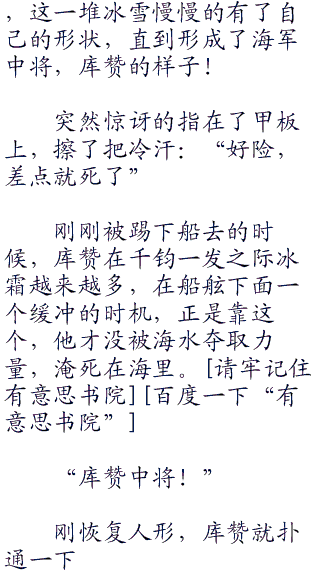 ，这一堆冰雪慢慢的有了自
己的形状，直到形成了海军
中将，库赞的样子！
突然惊讶的指在了甲板
上，擦了把冷汗：“好险，
差点就死了”
刚刚被踢下船去的时
候，库赞在千钧一发之际冰
霜越来越多，在船舷下面一
个缓冲的时机，正是靠这
个，他才没被海水夺取力
量，淹死在海里。[请牢记住
有意思书院][百度一下“有
意思书院”]
“库赞中将！”
刚恢复人形，库赞就扑
通一下